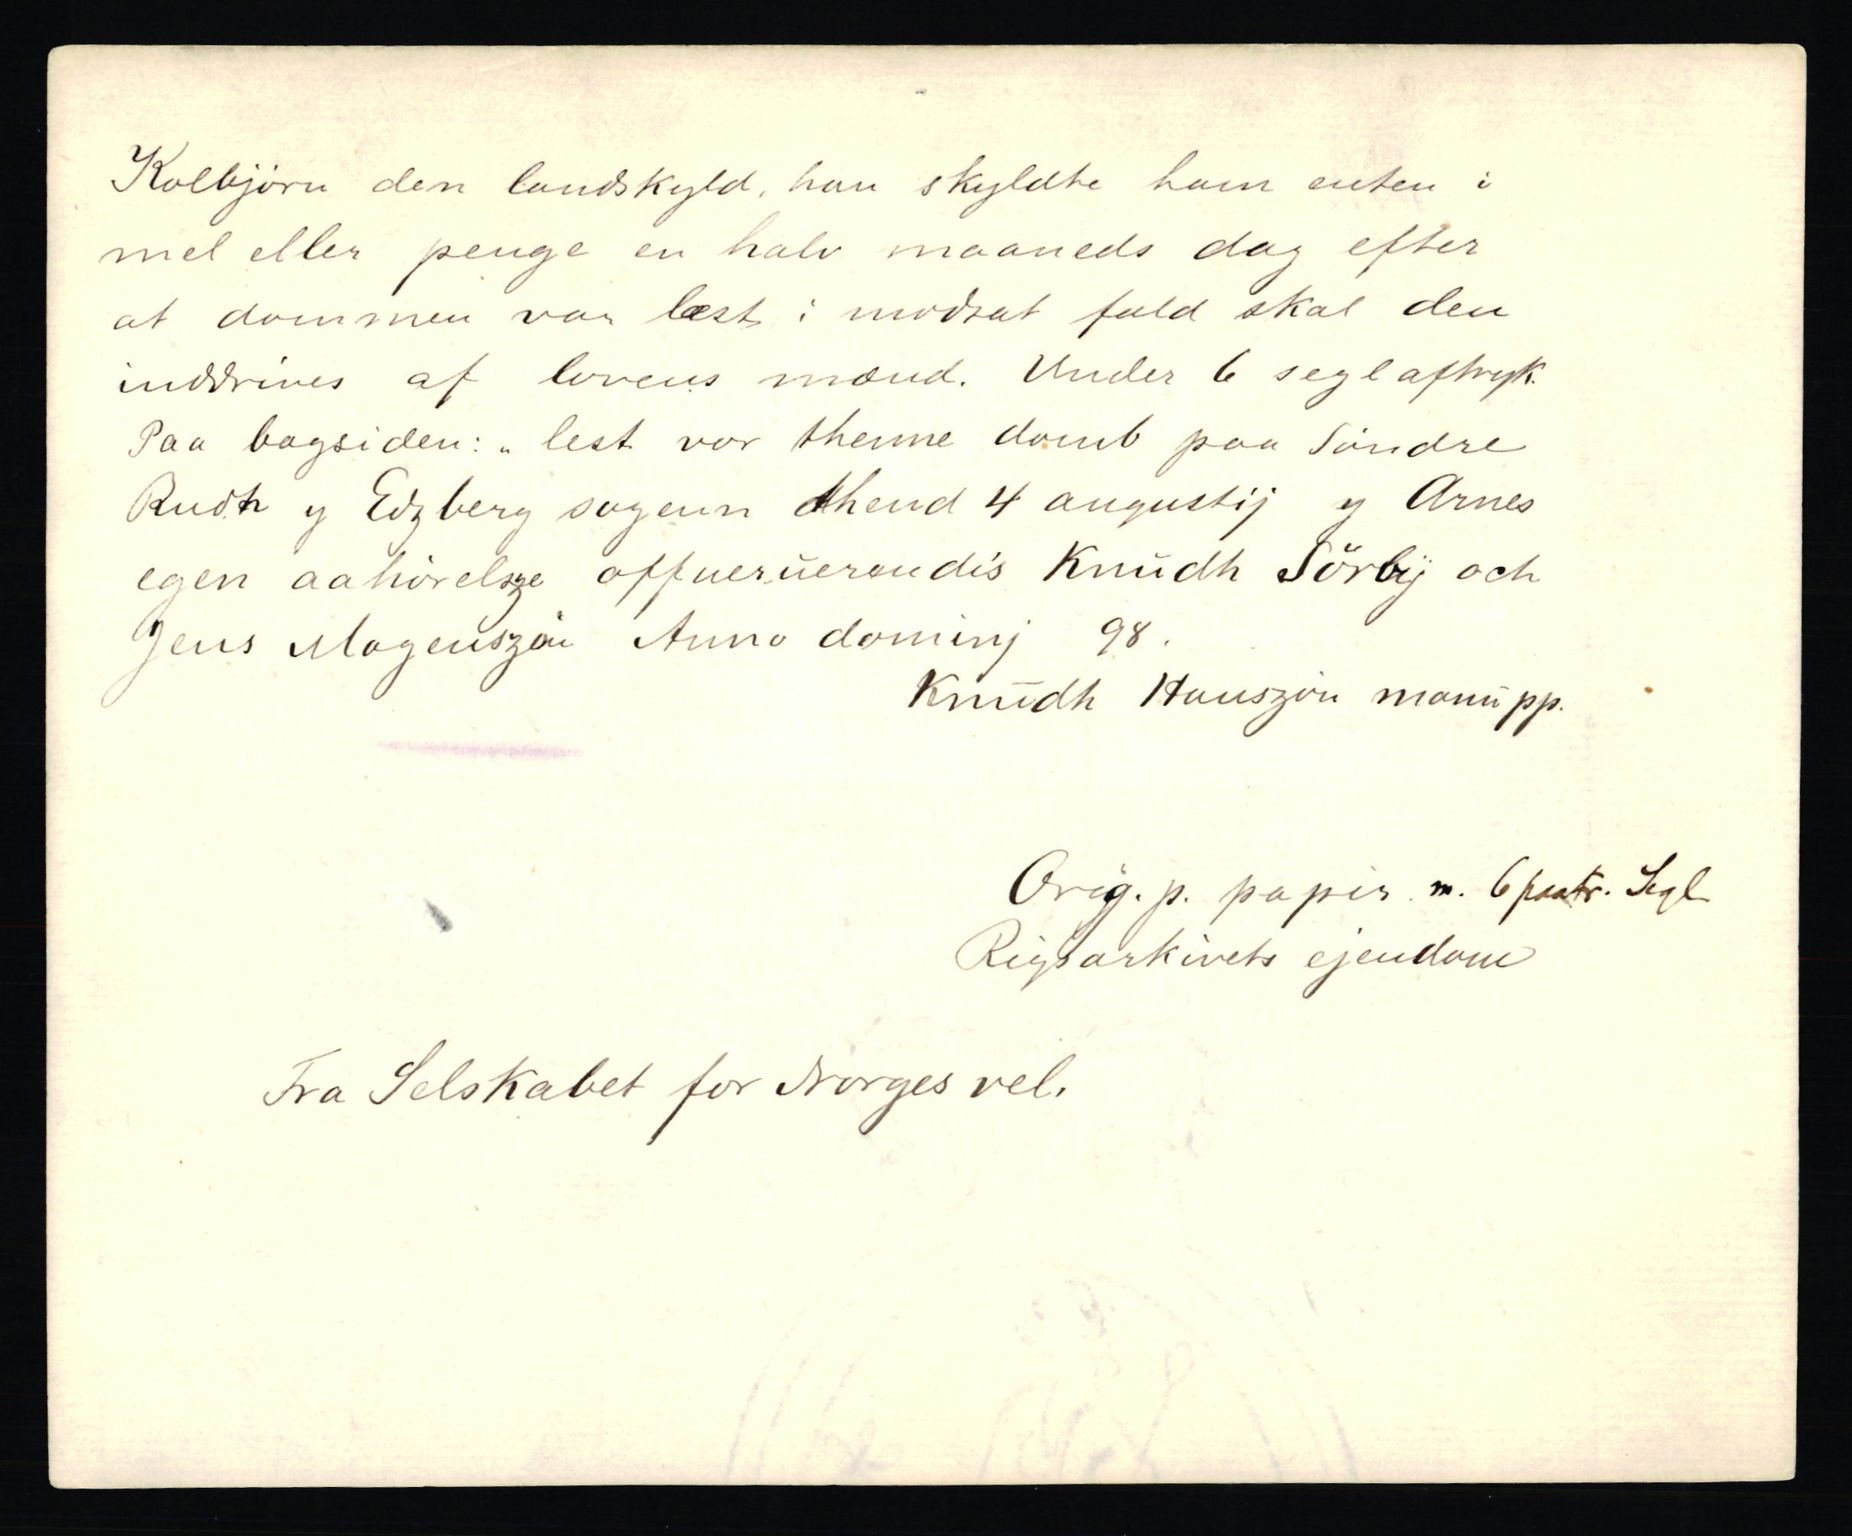 Kolbjörn den landskyld, han skyldte ham enten i
mel eller penge en halv maaneds dag efter
at dommen var læst; i modsat fald skal den
inddrives af lovens mænd. Under 6 segl aftryk.
Paa bagsiden: „ lest var thenne domb paa Söndre
Rudh y Edzberg sogenn thend 4 augustij y Arnes
egen aahörelsze offueruerendis Knŭdh Sörbÿ och
Jens Mogenszön Anno dominj 98.
Knŭdh Hanszön manŭ pp.
Orig. p. papir m. 6 paatr. Segl
Rigsarkivets ejendom
Fra Selskabet for Norges vel.